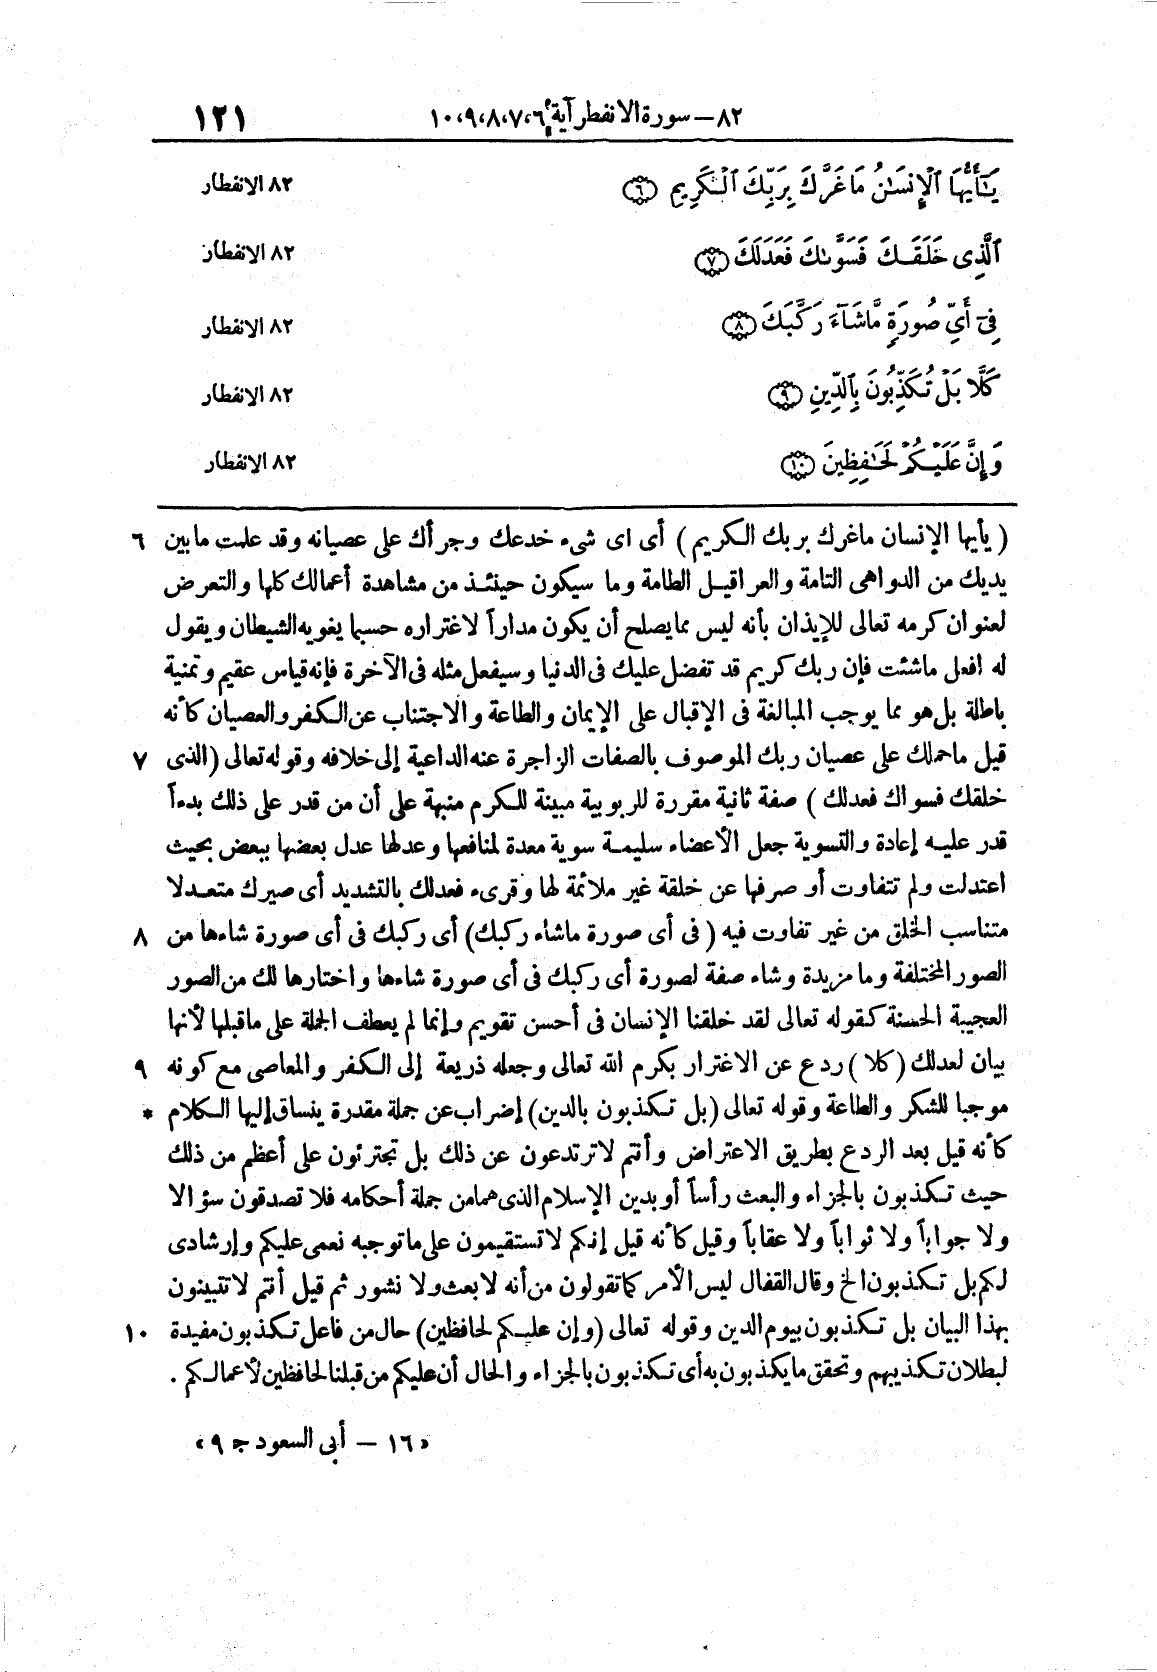 ٨٢ — سورة الانفطر آية ٦،٧،٨،٩،١٠ ١٢١
يَٰٓأَيُّهَا ٱلْإِنسَٰنُ مَا غَرَّكَ بِرَبِّكَ ٱلْكَرِيمِ ٦ ٨٢ الانفطار
ٱلَّذِى خَلَقَكَ فَسَوَّىٰكَ فَعَدَلَكَ ٧ ٨٢ الانفطار
فِىٓ أَىِّ صُورَةٍ مَّا شَآءَ رَكَّبَكَ ٨ ٨٢ الانفطار
كَلَّا بَلْ تُكَذِّبُونَ بِٱلدِّينِ ٩ ٨٢ الانفطار
وَإِنَّ عَلَيْكُمْ لَحَٰفِظِينَ ١٠ ٨٢ الانفطار
( يأيها الإنسان ماغرك بربك الكريم ) أى اى شىء خدعك وجرأك على عصيانه وقد علمت مابين ٦
يديك من الدواهى التامة والعراقيل الطامة وما سيكون حينئذ من مشاهدة أعمالك كلها والتعرض
لعنوان كرمه تعالى للإيذان بأنه ليس مما يصلح أن يكون مداراً لاغتراره حسبما يغويه الشيطان ويقول
له افعل ماشئت فإن ربك كريم قد تفضل عليك فى الدنيا وسيفعل مثله فى الآخرة فإنه قياس عقيم وتمنية
باطلة بل هو مما يوجب المبالغة فى الإقبال على الإيمان والطاعة والاجتناب عن الكفر والعصيان كأنه
قيل ماحملك على عصيان ربك الموصوف بالصفات الزاجرة عنه الداعية إلى خلافه وقوله تعالى (الذى ٧
خلقك فسواك فعدلك ) صفة ثانية مقررة للربوبية مبينة للكرم منبهة على أن من قدر على ذلك بدءاً
قدر عليه إعادة والتسوية جعل الأعضاء سليمة سوية معدة لمنافعها وعدلها عدل بعضها ببعض بحيث
اعتدلت ولم تتفاوت أو صرفها عن خلقة غير ملائمة لها وقرىء فعدلك بالتشديد أى صيرك متعدلا
متناسب الخلق من غير تفاوت فيه ( فى أى صورة ماشاء ركبك) أى ركبك فى أى صورة شاءها من ٨
الصور المختلفة وما مزيدة وشاء صفة لصورة أى ركبك فى أى صورة شاءها واختارها لك من الصور
العجيبة الحسنة كقوله تعالى لقد خلقنا الإنسان فى أحسن تقويم وإنما لم يعطف الجملة على ماقبلها لأنها
بيان لعدلك (كلا ) ردع عن الاغترار بكرم الله تعالى وجعله ذريعة إلى الكفر والمعاصى مع كونه ٩
موجبا للشكر والطاعة وقوله تعالى (بل تكذبون بالدين) إضراب عن جملة مقدرة ينساق إليها الكلام *
كأنه قيل بعد الردع بطريق الاعتراض وأنتم لا ترتدعون عن ذلك بل تجترئون على أعظم من ذلك
حيث تكذبون بالجزاء والبعث رأساً أو بدين الإسلام الذى هما من جملة أحكامه فلا تصدقون سؤالا
ولا جواباً ولا ثواباً ولا عقاباً وقيل كأنه قيل إنكم لا تستقيمون على ماتوجبه نعمى عليكم وإرشادى
لكم بل تكذبون الخ وقال القفال ليس الأمر كما تقولون من أنه لا بعث ولا نشور ثم قيل أنتم لا تتبينون
بهذا البيان بل تكذبون بيوم الدين وقوله تعالى (وإن عليكم لحافظين) حال من فاعل تكذبون مفيدة ١٠
لبطلان تكذيبهم وتحقق ما يكذبون به أى تكذبون بالجزاء والحال أن عليكم من قبلنا لحافظين لأعمالكم .
«١٦ — أبى السعود جـ ٩»